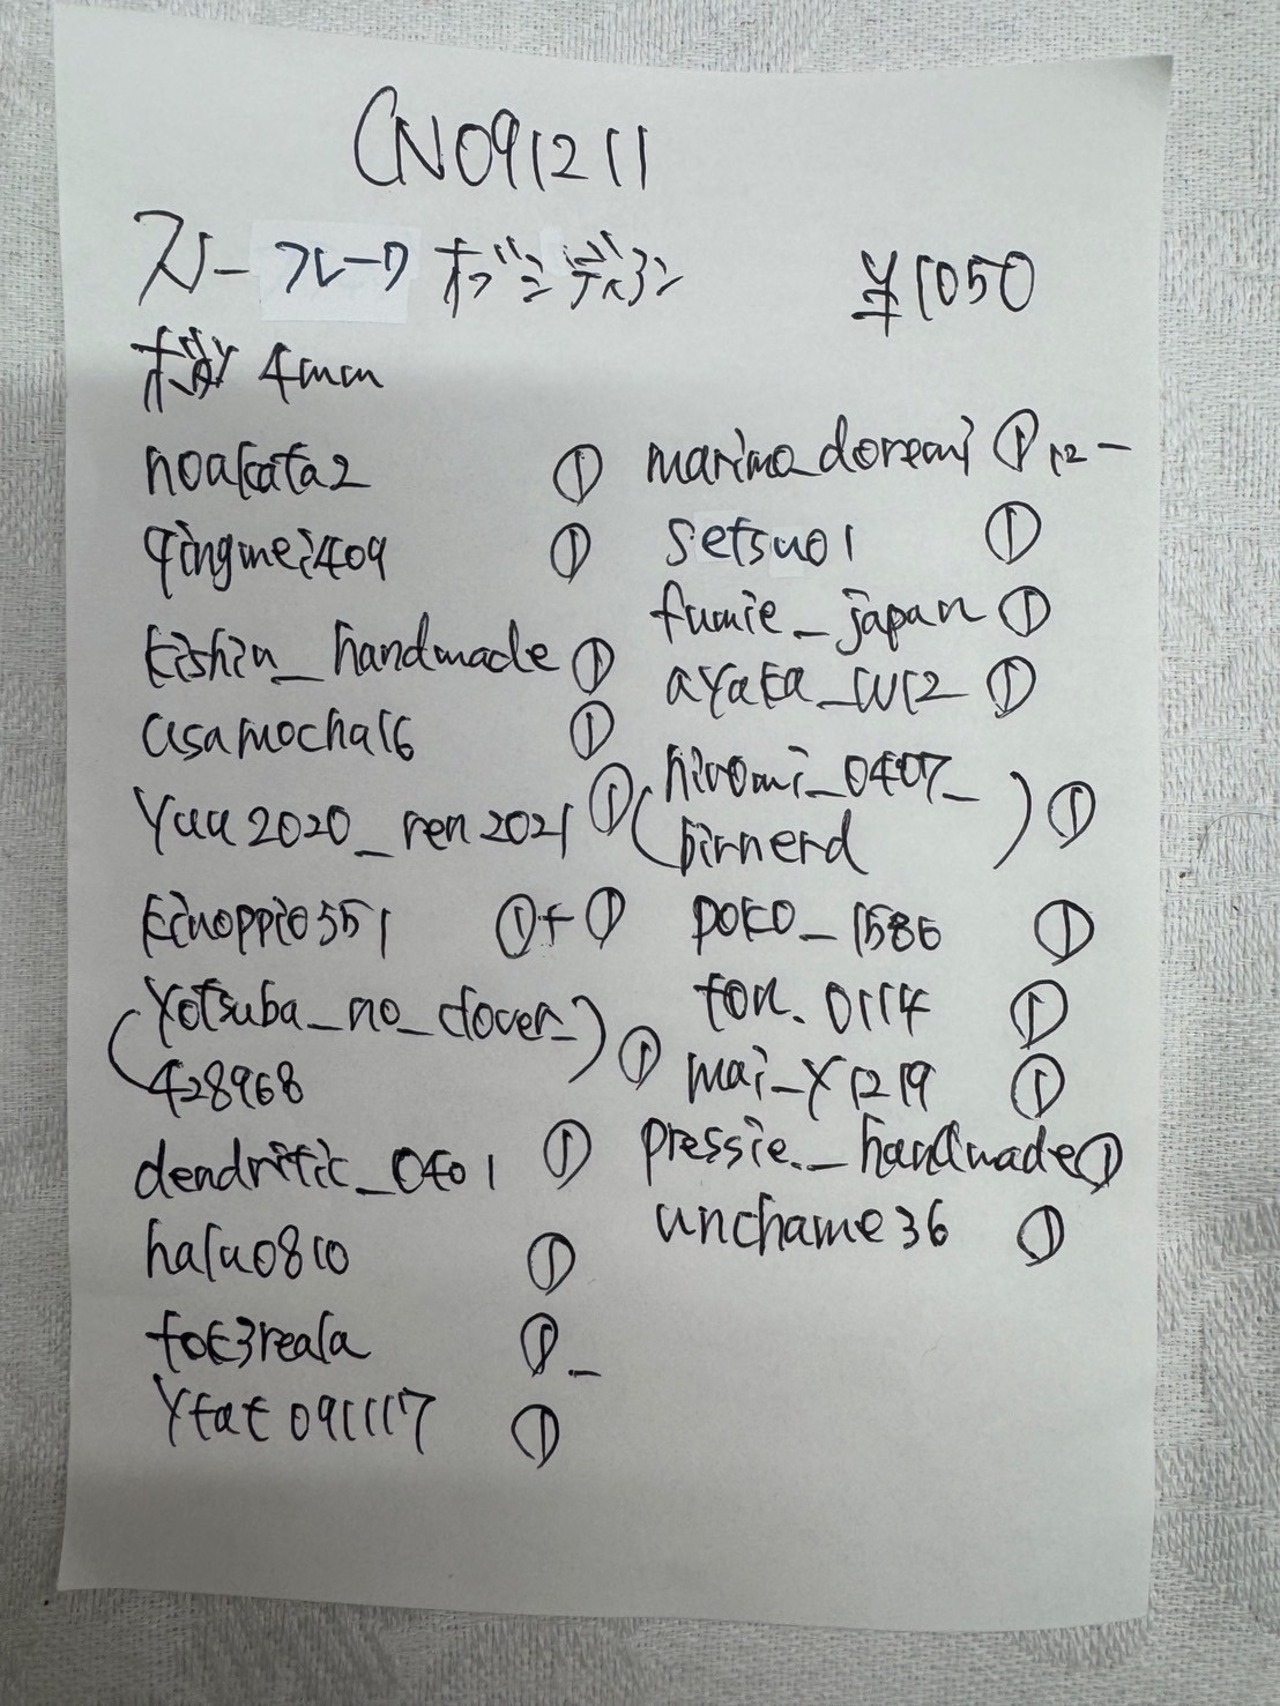 CN091211
スノーフレークオブシディアン ¥1050
ボタン 4mm
noakata2 ①
qingmei409 ①
kishin_handmade ①
asamocha16 ①
yuu2020_ren2021 ①
kinoppio551 ①+①
(yotsuba_no_clover_
428968) ①
dendritic_0401 ①
halu0810 ①
tok3reala ①
ytat091117 ①
marimo_doremi ①
setsu01 ①
fumie_japan ①
ayaka_w12 ①
(hiromi_0407_
birnerd) ①
poko_1586 ①
ton.0114 ①
mai_y1219 ①
pressie._handmade ①
unchame36 ①